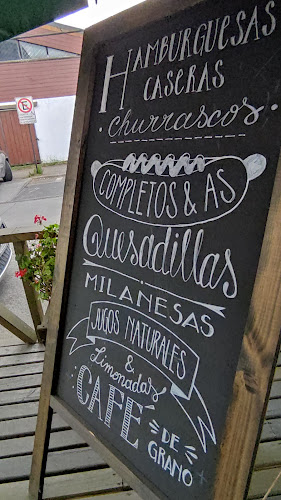 HAMBURGUESAS
CASERAS
· churrascos ·
COMPLETOS & AS
Quesadillas
· MILANESAS ·
JUGOS NATURALES
&
Limonadas
CAFE
DE
GRANO